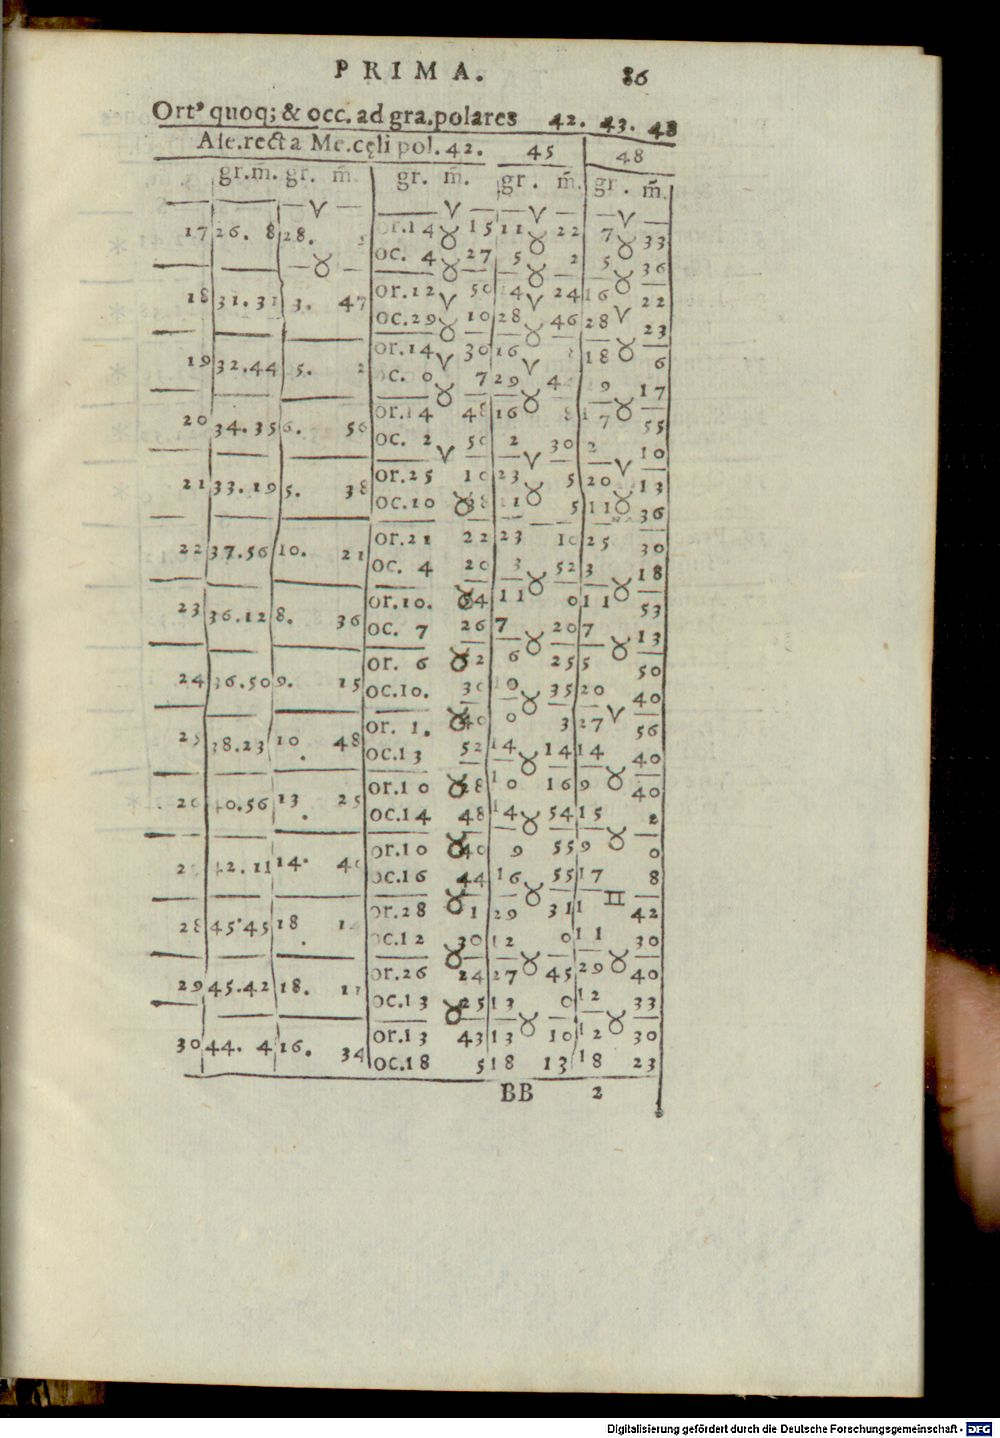 PRIMA. 86
Ort⁹ quoq; & occ. ad gra. polares 42. 43. 48
Ase. recta Me. cęli pol. 42. 45 48
gr. m̄. gr. m̄. gr. m̄. gr. m̄. gr. m̄.
♈ ♈ ♈ ♈
17 26. 8 28. or. 14 ♉ 15 11 ♉ 22 7 ♉ 33
♉ oc. 4 ♉ 27 5 ♉ 2 5 ♉ 36
18 31. 31 3. 47 or. 12 ♈ 50 14 ♈ 24 16 ♈ 22
oc. 29 ♉ 10 28 ♉ 46 28 ♉ 23
19 32. 44 5. or. 14 ♈ 30 16 ♈ 18 6
oc. 0 ♉ 7 29 ♉ 9 ♉ 17
20 34. 35 6. 56 or. 14 48 16 8 17 55
oc. 2 ♈ 50 2 ♈ 30 2 ♈ 10
21 33. 19 5. 38 or. 25 10 23 ♉ 5 20 ♉ 13
oc. 10 ♉ 38 11 5 11 36
22 37. 56 10. 21 or. 21 22 23 10 25 30
oc. 4 20 3 ♉ 52 3 ♉ 18
23 36. 12 8. 36 or. 10. ♉ 54 11 0 11 53
oc. 7 26 7 ♉ 20 7 ♉ 13
24 36. 50 9. 15 or. 6 ♉ 52 6 25 5 50
oc. 10. 30 10 ♉ 35 20 ♈ 40
25 38. 23 10. 48 or. 1. ♉ 40 0 3 27 56
oc. 13 52 14 ♉ 14 14 ♉ 40
40. 56 13. 25 or. 10 ♉ 28 10 16 9 40
oc. 14 48 14 ♉ 54 15 ♉ 2
42. 11 14. or. 10 ♉ 40 9 55 9 0
oc. 16 44 16 ♉ 55 17 ♊ 8
28 45. 45 18. or. 28 ♉ 1 29 31 1 42
oc. 12 ♉ 30 12 ♉ 0 11 ♉ 30
29 45. 42 18. 11 or. 26 24 27 45 29 40
oc. 13 ♉ 25 13 ♉ 0 12 ♉ 33
30 44. 4 16. 34 or. 13 43 13 10 12 30
oc. 18 5 18 13 18 23
BB 2
Digitalisierung gefördert durch die Deutsche Forschungsgemeinschaft - DFG